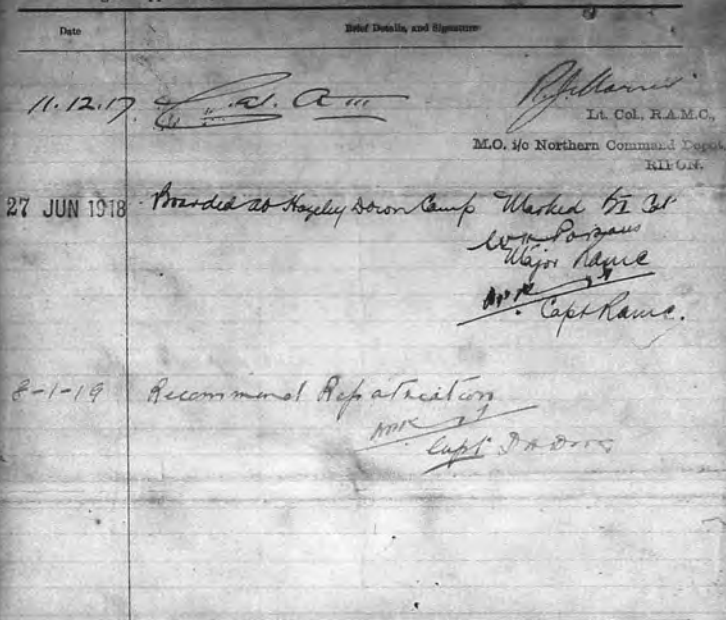 Date Brief Details, and Signature
11.12.17. Cat. A III
Lt. Col., R.A.M.C.,
M.O. i/c Northern Command Depot,
RIPON.
27 JUN 1918 Boarded at Hazeley Down Camp Marked BI Cat
Parsons
Major RAMC
Capt RAMC.
8-1-19 Recommend Repatriation
Capt